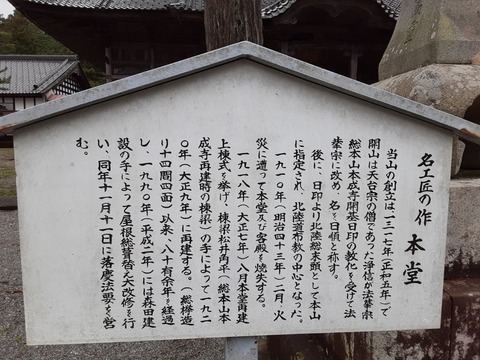 名工匠の作 本堂
当山の創立は一三一七年(正和五年)で
開山は天台宗の僧であった浄信が法華宗
総本山本成寺開基日印の教化を受けて法
華宗に改め、名を日順と称す。
後に、日印より北陸総末頭として本山
に指定され、北陸道布教の中心となった。
一九一〇年(明治四十三年)二月、火
災に遭って本堂及び客殿を焼失する。
一九一八年(大正七年)八月本堂再建
上棟式を挙げ、棟梁松井角平(総本山本
成寺再建時の棟梁)の手によって一九二
〇年(大正九年)に再建する。(総欅造
り十四間四面)以来、八十有余年を経過
し、一九九〇年(平成二年)には森田建
設の手によって屋根総葺替え大改修を行
い、同年十一月十一日に落慶法要を営
む。